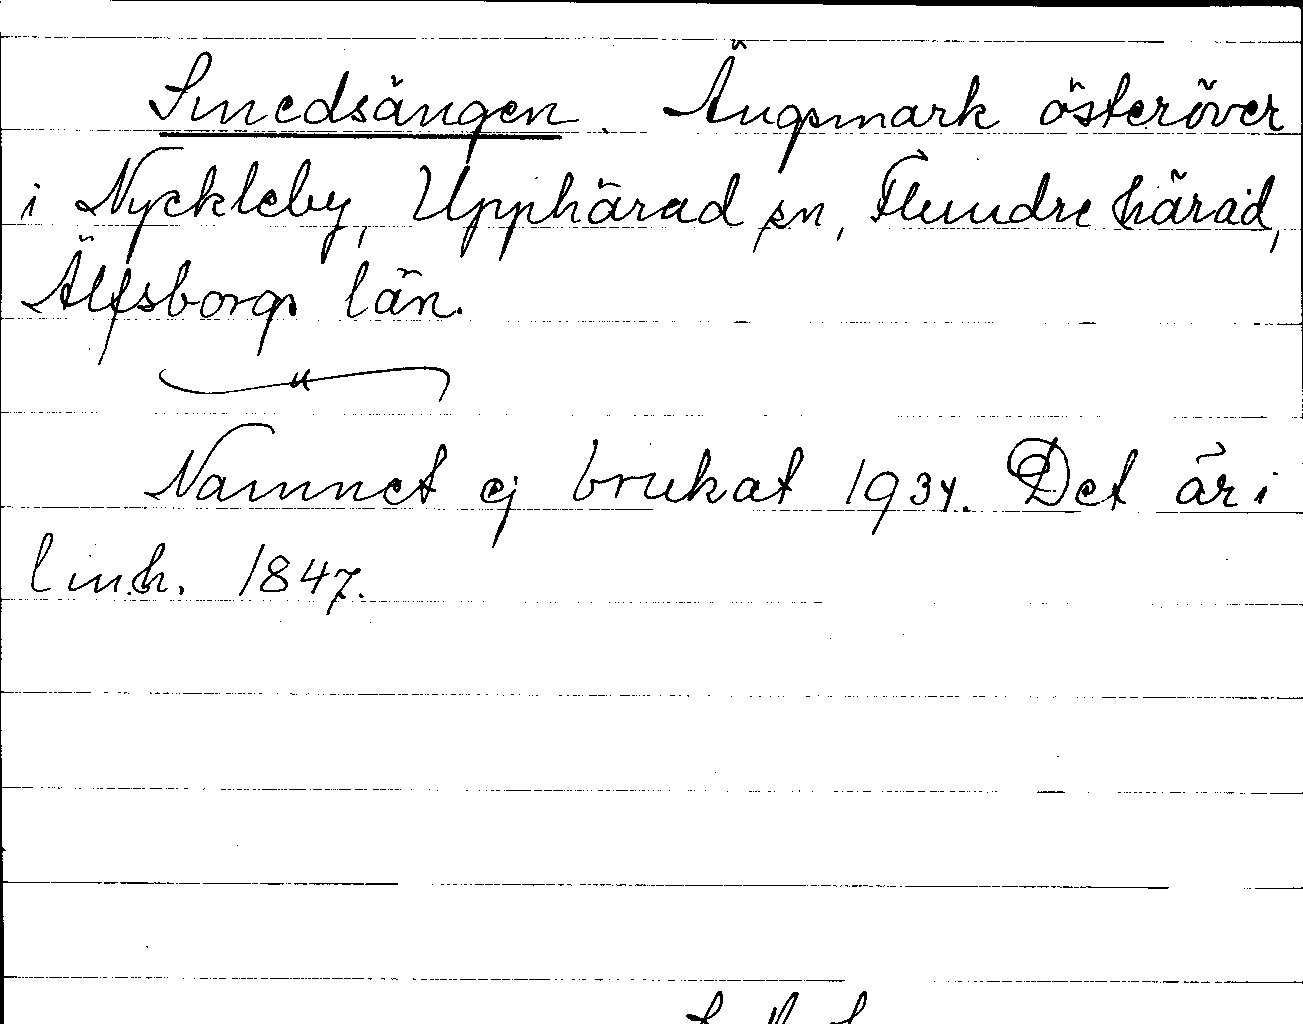 Smedsängen. Ängsmark österöver
i Nyckleby, Upphärad sn, Flundre härad,
Älfsborgs län.
Namnet ej brukat 1934. Det är i
l m.h. 1847.